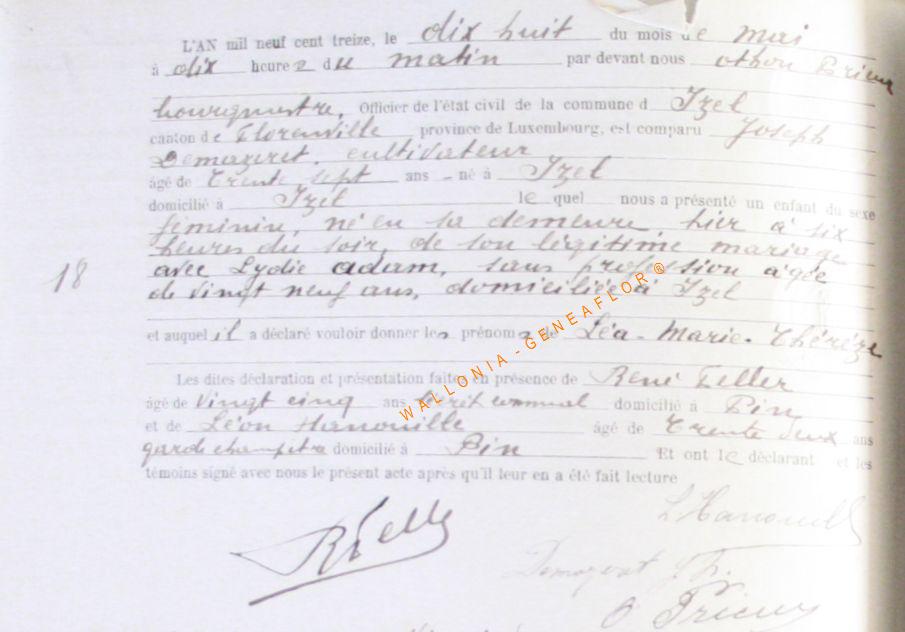 L'AN mil neuf cent treize, le dix huit du mois de mai
à dix heures du matin par devant nous Othon Prieur
bourgmestre, Officier de l'état civil de la commune d Izel
canton de Florenville, province de Luxembourg, est comparu Joseph
Demazeret, cultivateur
âgé de trente sept ans - né à Izel
domicilié à Izel lequel nous a présenté un enfant du sexe
féminin, né en sa demeure, hier à six
heures du soir, de son légitime mariage
avec Lydie adam, sans profession âgée
18
de vingt neuf ans, domiciliée à Izel
et auquel il a déclaré vouloir donner les prénoms de Léa-Marie-Thérèze
Les dites déclaration et présentation faites en présence de René Feller
âgé de vingt cinq ans communal domicilié à Pin
et de Léon Hanouille âgé de trente deux ans
garde champêtre domicilié à Pin Et ont le déclarant et les
témoins signé avec nous le présent acte après qu'il leur en a été fait lecture
WALLONIA - GENEAFLOR®
L Hanouille
RFelle
Demazeret J.
O Prieur